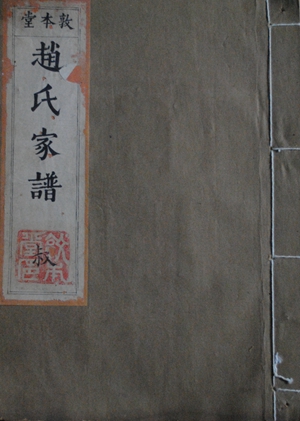 敦本堂
趙氏家譜
叔